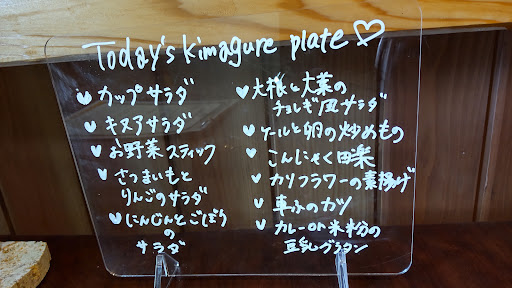 Today's kimagure plate♡
♥カップサラダ
♥キヌアサラダ
♥お野菜スティック
♥さつまいもと
りんごのサラダ
♥にんじんとごぼう
の
サラダ
♥大根と大葉の
チョレギ風サラダ
♥ケールと卵の炒めもの
♥こんにゃく田楽
♥カリフラワーの素揚げ
♥車ふのカツ
♥カレーor米粉の
豆乳グラタン